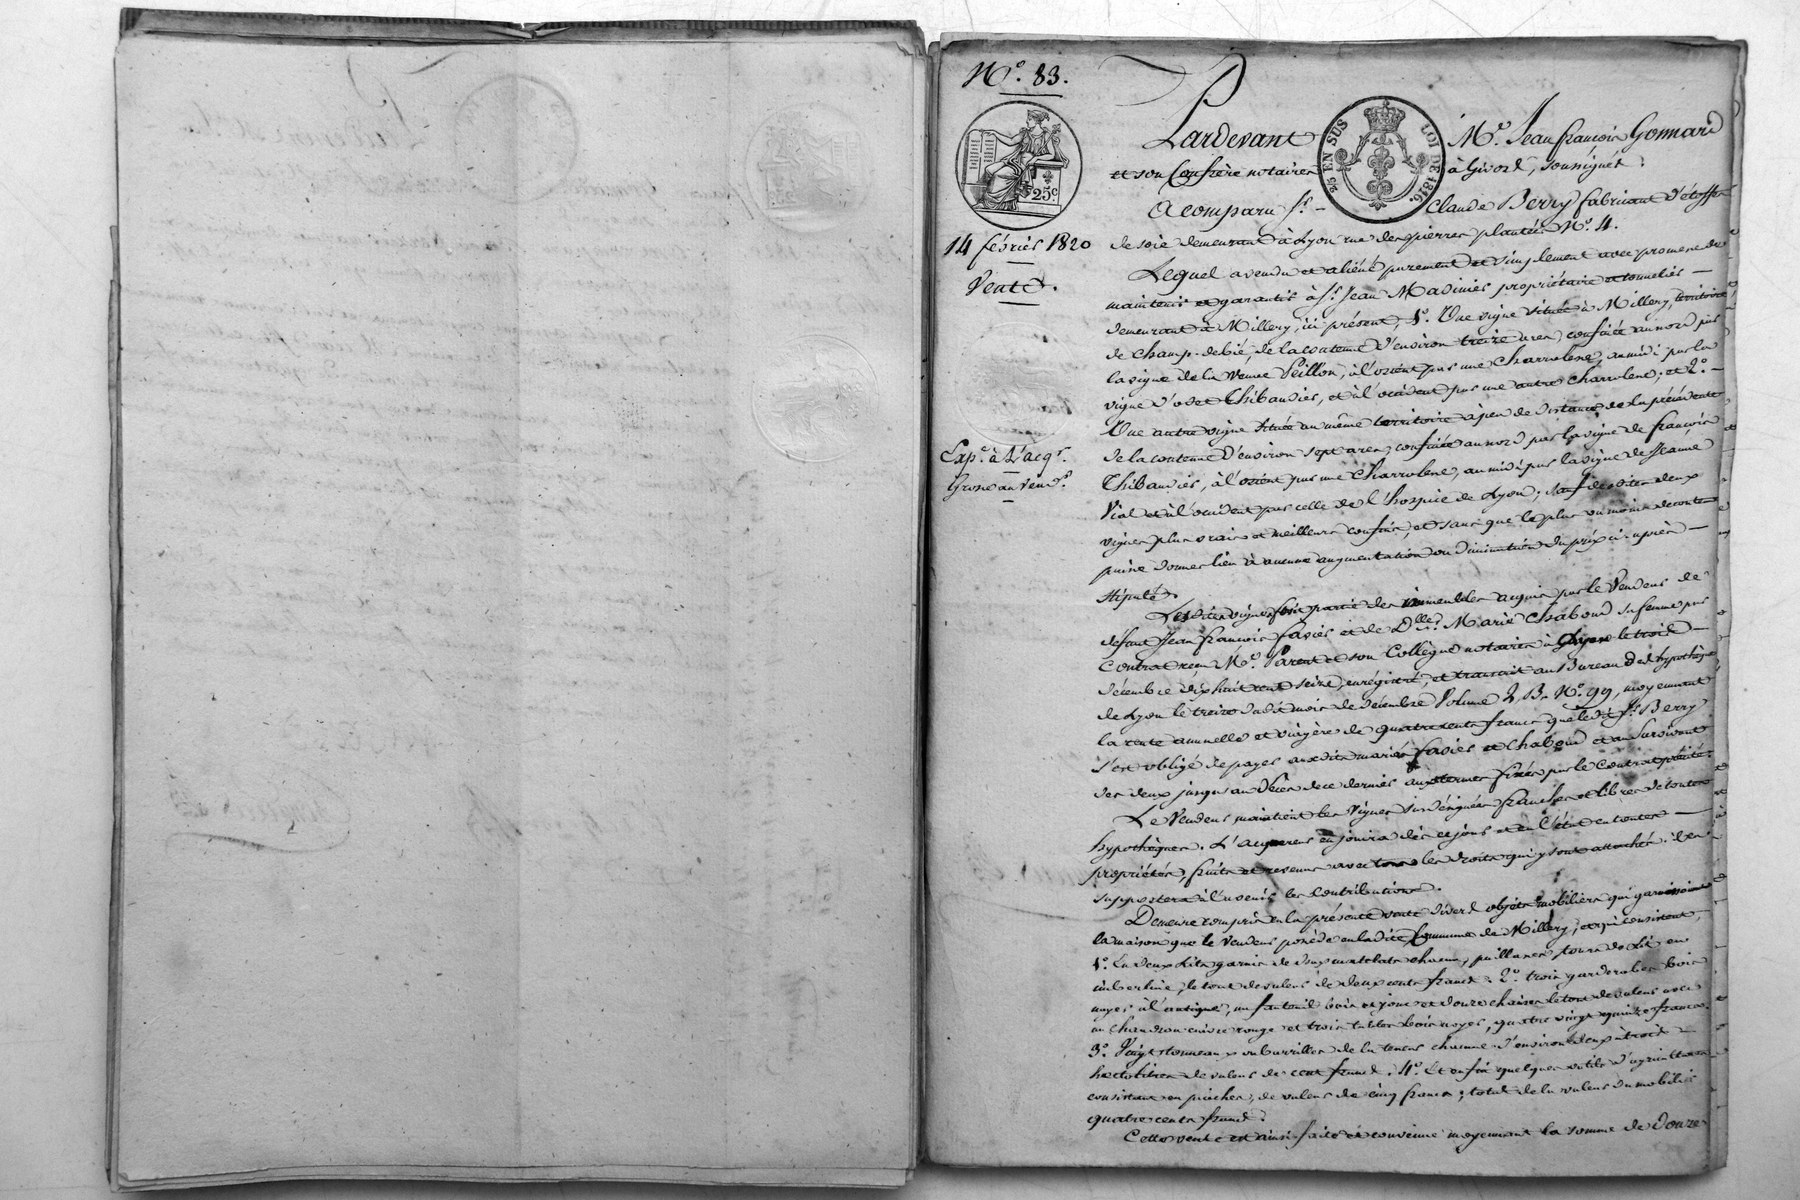 N.º 83.
25.c
25 EN SUS
LOI DE 1816.
14 février 1820
Vente.
Exp.e à l'acqr.
Grosse au vendr.
Pardevant Me. Jean françois Gonnard
et son Confrère notaires à Givors, soussignés :
A comparu Sr. Claude Berry fabricant d'étoffes
de soie demeurant à Lyon rue des pierres plantées No. 4.
Lequel a vendu et aliéné purement et simplement avec promesse de
maintenir et garantir à Sr. Jean Madinier propriétaire et tonnelier
demeurant à Millery, ici présent, 1o. Une vigne située à Millery, territoire
de Champ-debié, de la contenue d'environ treize ares, confinée au nord par
la vigne de la veuve Peillon, à l'orient par une Charrolene, au midi par la
vigne d'odet Thibaudier, et à l'occident par une autre Charrolene ; et 2o.
Une autre vigne située au même territoire à peu de distance de la précédente
de la contenue d'environ sept ares, confinée au nord par la vigne de françois
Thibaudier, à l'orient par une Charrolene, au midi par la vigne de Jeanne
Vial et à l'occident par celle de l'hospice de Lyon ; sauf desdites deux
vignes plus vrais et meilleurs confins, et sans que le plus ou moins de contenue
puisse donner lieu à aucune augmentation ou diminution du prix ci-après
stipulé.
Lesdites vignes font partie des immeubles acquis par le Vendeur de
défunt Jean françois favier et de Dlle. Marie Chaboud sa femme par
Contrat reçu Me. Parent et son Collègue notaires à Lyon le trois
décembre dix huit cent seize, enrégistré, et transcrit au Bureau des hypothèques
de Lyon le treize dudit mois de décembre Volume 2 B. No. 99, moyennant
la rente annuelle et viagère de quatre cents francs que ledit Sr. Berry
s'est obligé de payer auxdits mariés favier et Chaboud et au Survivant
des deux jusqu'au décès de ce dernier aux termes fixés par le Contrat précité.
Le Vendeur maintient les vignes sus désignées franches et libres de toutes
hypothèques. L'acquéreur en jouira dès ce jour et en l'état en toutes
propriétés, fruits et revenus avec tous les droits qui y sont attachés. il en
supportera à l'avenir les Contributions.
Demeure compris en la présente vente divers objets mobiliers qui garnissoient
la maison que le Vendeur possède en ladite Commune de Millery, et qui consistent,
1o. En deux lits garnis de deux matelats chacun, paillasses, tours de lit en
imberline, le tout de valeur de deux cents francs. 2o. trois garderobes bois
noyer à l'antique, un fauteuil bois et jonc et douze chaises le tout de valeur avec
un Chaudron cuivre rouge et trois tables bois noyer, quatre vingt quinze francs.
3o. Vingt tonneaux ou barrilles de la teneur chacune d'environ deux à trois
hectolitres de valeur de cent francs. 4o. Et enfin quelques outils d'agriculture
consistant en pioches, de valeur de cinq francs ; total de la valeur du mobilier
quatre cents francs.
Cette vente est ainsi faite et convenue moyennant la somme de douze